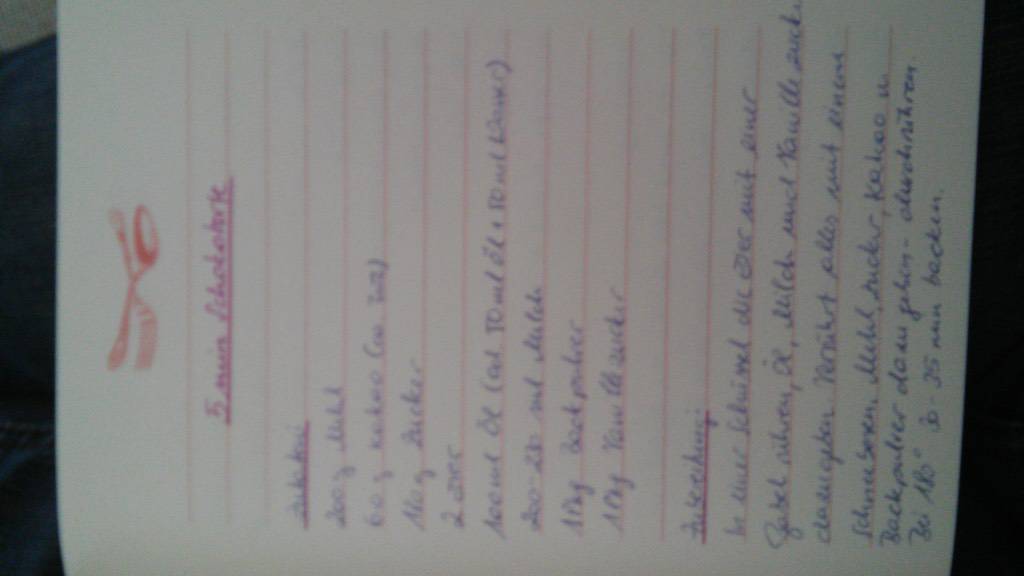 5 min Schokotorte
Zutaten:
200 g Mehl
60 g Kakao (ca.
g Zucker
2 Eier
100 ml Öl (od. 50 ml Öl + 50 ml Wasser)
200-250 ml Milch
1 Pkg Backpulver
1 Pkg Vanillezucker
Zubereitung:
In einer Schüssel die Eier mit einer
Gabel rühren, Öl, Milch und Vanillezucker
dazugeben. Verrührt alles mit einem
Schneebesen. Mehl, Zucker, Kakao u
Backpulver dazu geben - durchrühren.
Bei 180° 30-35 min backen.